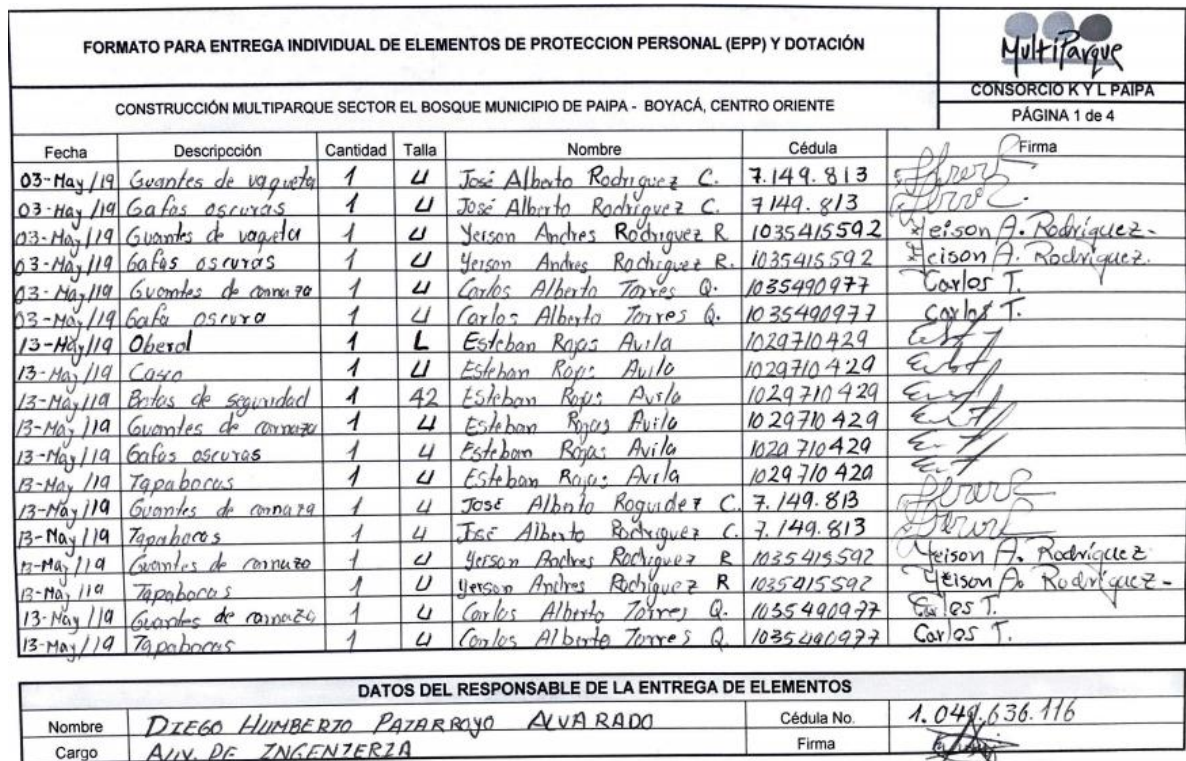 FORMATO PARA ENTREGA INDIVIDUAL DE ELEMENTOS DE PROTECCION PERSONAL (EPP) Y DOTACIÓN
MultiParque
CONSORCIO K Y L PAIPA
CONSTRUCCIÓN MULTIPARQUE SECTOR EL BOSQUE MUNICIPIO DE PAIPA - BOYACÁ, CENTRO ORIENTE
PÁGINA 1 de 4
Fecha Descripcción Cantidad Talla Nombre Cédula Firma
03-May/19 Guantes de vaqueta 1 U José Alberto Rodriguez C. 7.149.813
03-May/19 Gafas oscuras 1 U José Alberto Rodriguez C. 7149.813
03-May/19 Guantes de vaqueta 1 U Yerson Andres Rodriguez R 1035415592 Yeison A. Rodríguez-
03-May/19 Gafas oscuras 1 U Yerson Andres Rodriguez R. 1035415592 Yeison A. Rodríguez.
03-May/19 Guantes de carnaza 1 U Carlos Alberto Torres Q. 1035490977 Carlos T.
03-May/19 Gafa oscura 1 U Carlos Alberto Torres Q. 1035490977 Carlos T.
13-May/19 Oberol 1 L Esteban Rojas Avila 1029710429
13-May/19 Casco 1 U Esteban Rojas Avila 1029710429
13-May/19 Botas de seguridad 1 42 Esteban Rojas Avila 1029710429
13-May/19 Guantes de carnaza 1 U Esteban Rojas Avila 1029710429
13-May/19 Gafas oscuras 1 U Esteban Rojas Avila 1029710429
13-May/19 Tapabocas 1 U Esteban Rojas Avila 1029710429
13-May/19 Guantes de carnaza 1 U José Alberto C. 7.149.813
13-May/19 Tapabocas 1 U José Alberto Rodriguez C. 7.149.813
13-May/19 Guantes de carnaza 1 U Yerson Andres Rodriguez R 1035415592 Yeison A. Rodríguez
13-May/19 Tapabocas 1 U Yerson Andres Rodriguez R 1035415592 Yeison A. Rodríguez-
13-May/19 Guantes de carnaza 1 U Carlos Alberto Torres Q. 1035490977 Carlos T.
13-May/19 Tapabocas 1 U Carlos Alberto Torres Q. 1035490977 Carlos T.
DATOS DEL RESPONSABLE DE LA ENTREGA DE ELEMENTOS
Nombre DIEGO HUMBERTO PATARROYO ALVARADO Cédula No. 1.049.636.116
Cargo AUX. DE INGENIERIA Firma